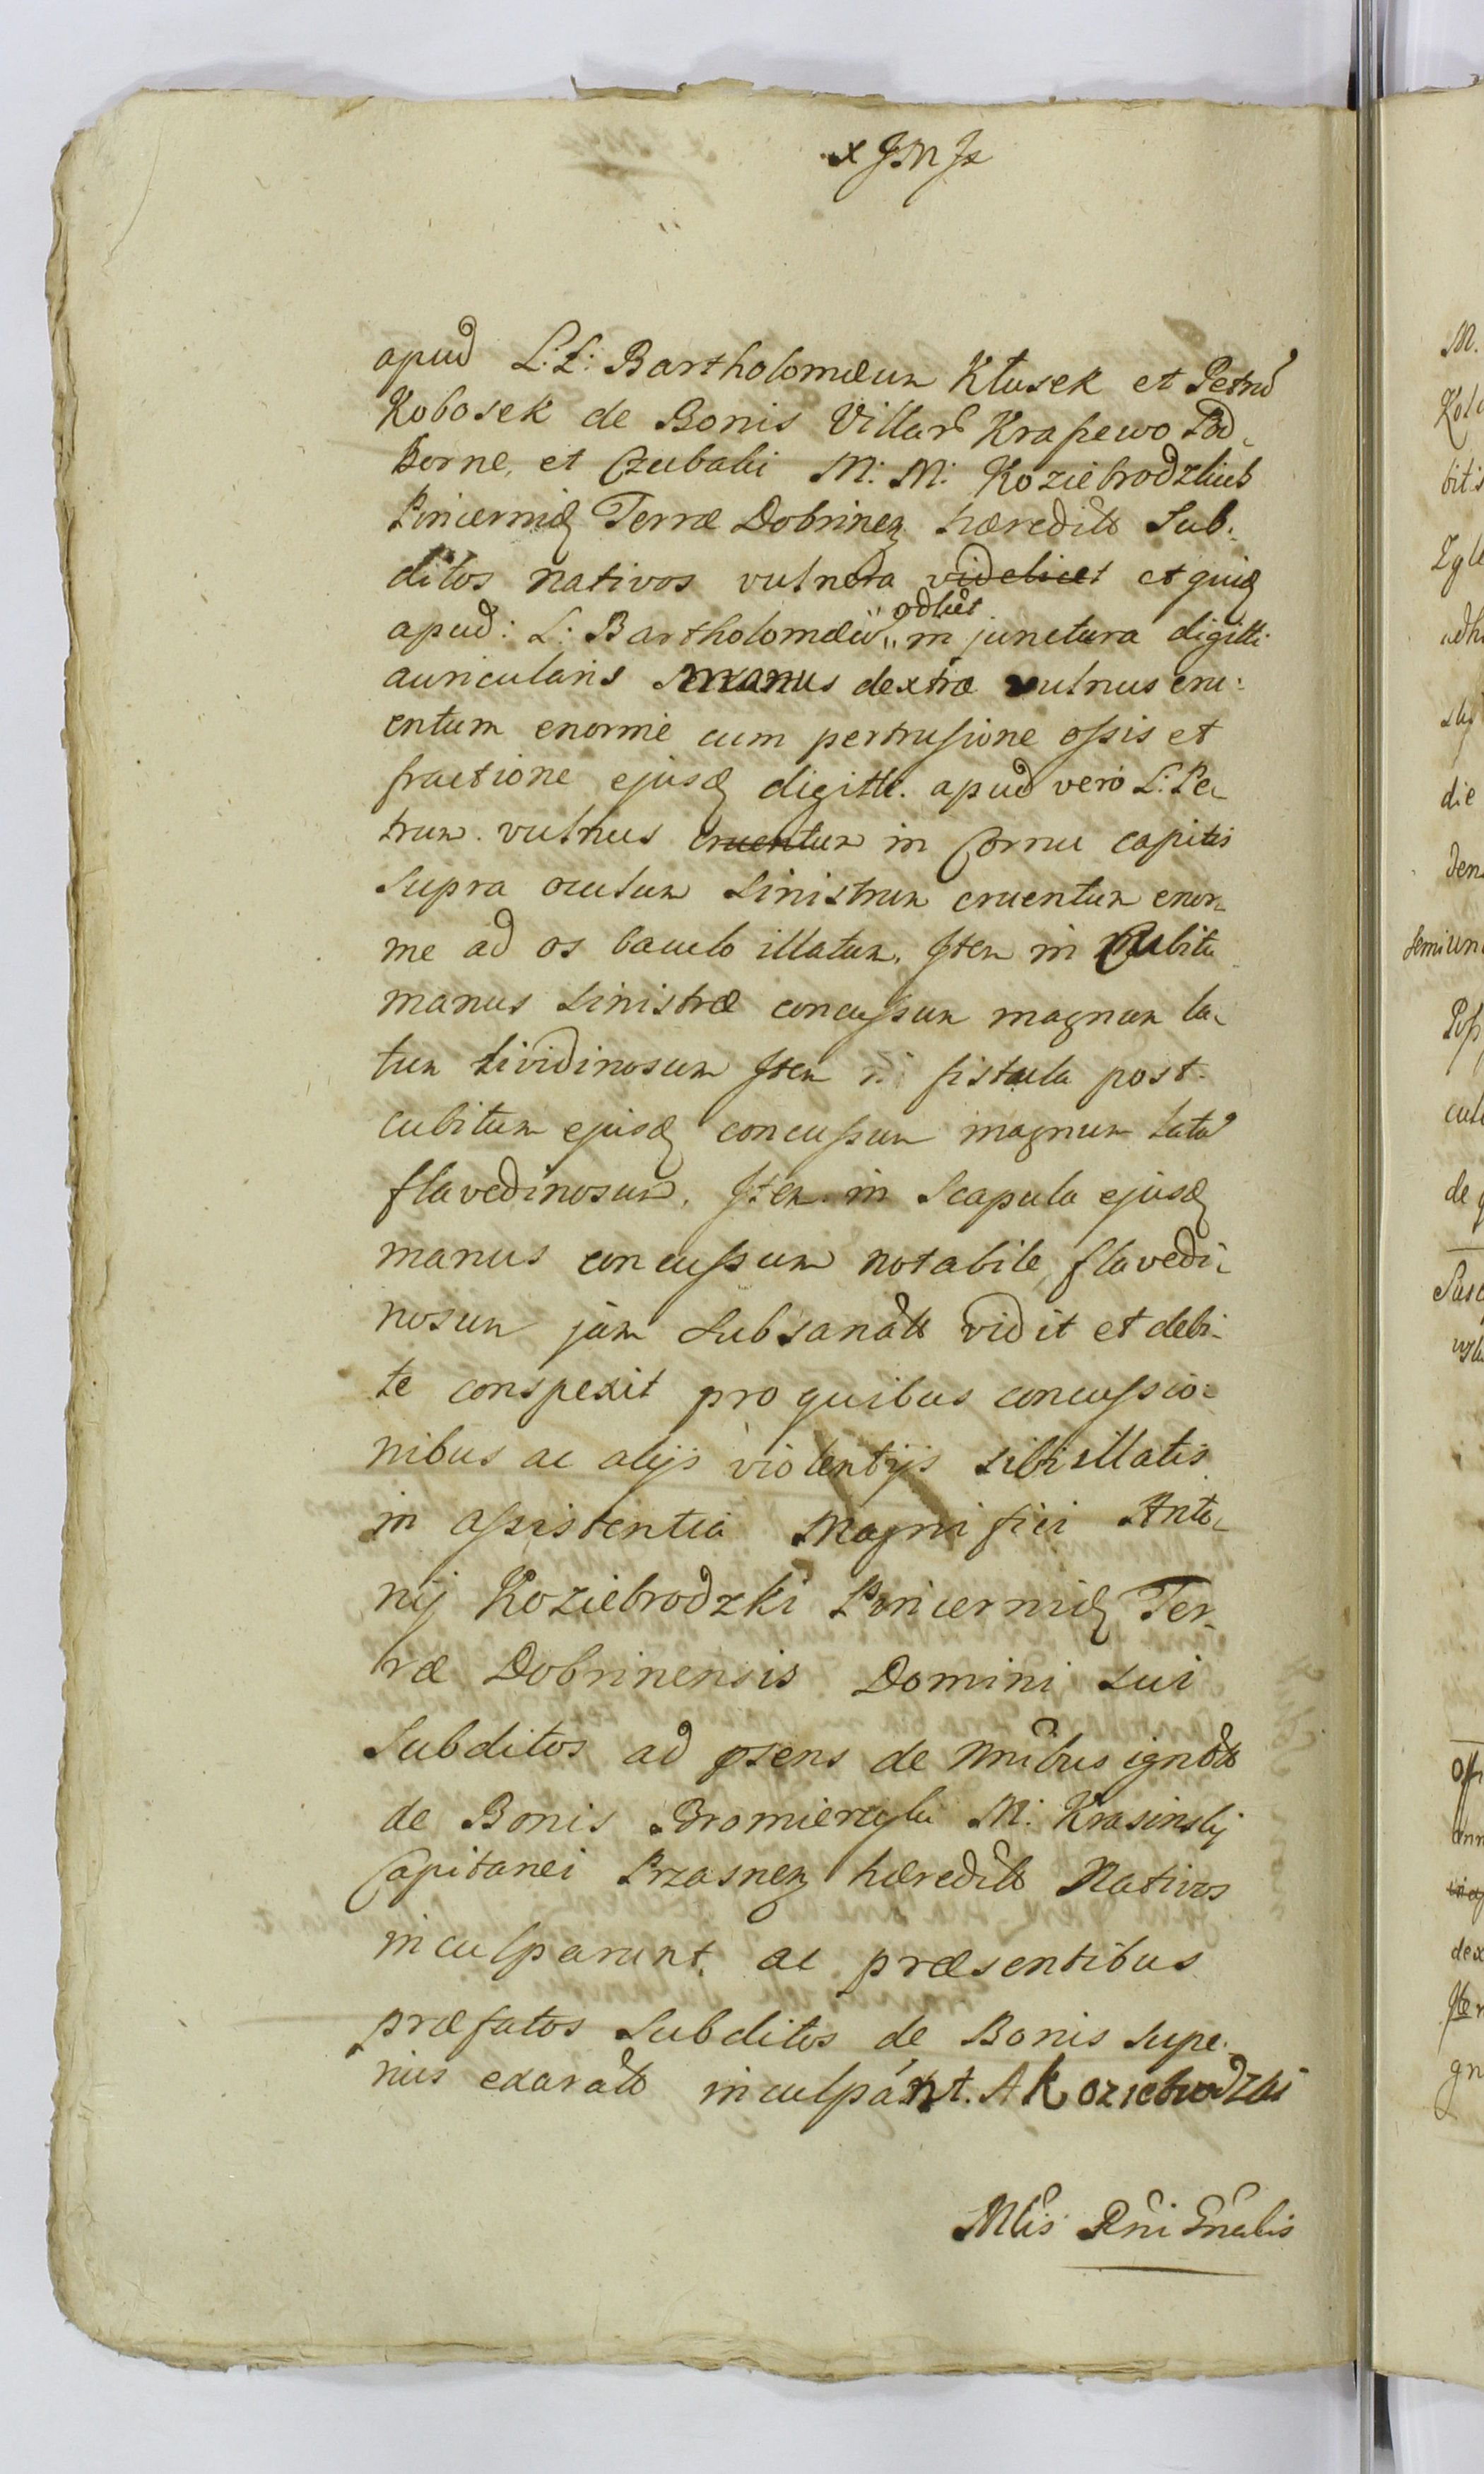 apud L: L: Bartholomæum Kłusek et Petrū
Kobosek de Bonis Villarū Krassewo Pod
Borne, et Czubaki M: M: Koziebrodzkich
Pincernidæ Terræ Dobrinen hæredit Sub
ditos nativos vulnera videlicet et quidē
apud: L: Bartholomæū in junctura digitti
auricularis manus dextræ vulnus cru:
entum enorme cum pertrusione ossis et
fractione ejusd digitti. apud vero L: Pe
trum vulnus cruentum in Cornu capitis
supra oculum sinistrum cruentum enor
me ad os baculo illatum. Item in Cubitu
manus sinistræ concussum magnum la
tum lividinosum Item in fistula post
cubitum ejusd concussum magnum latū
flavedinosum. Item in scapula ejusd
manus concussum notabile flavedi
nosum jam subsanatt vidit et debi
te conspexit pro quibus concussio
nibus ac alijs violentijs sibi illatis
in assistentia Magnifici Anto
nij Koziebrodzki Pincernidæ Ter
ræ Dobrinensis Domini sui
Subditos ad psens de nnibus ignott
de Bonis M: Krasinskij
Capitanei Przasnen hæredit Nativos
inculparunt ac præsentibus
præfatos Subditos de Bonis supe
rius exaratt inculpant. A Koziebrodzki
Mlis Rni Gnalis